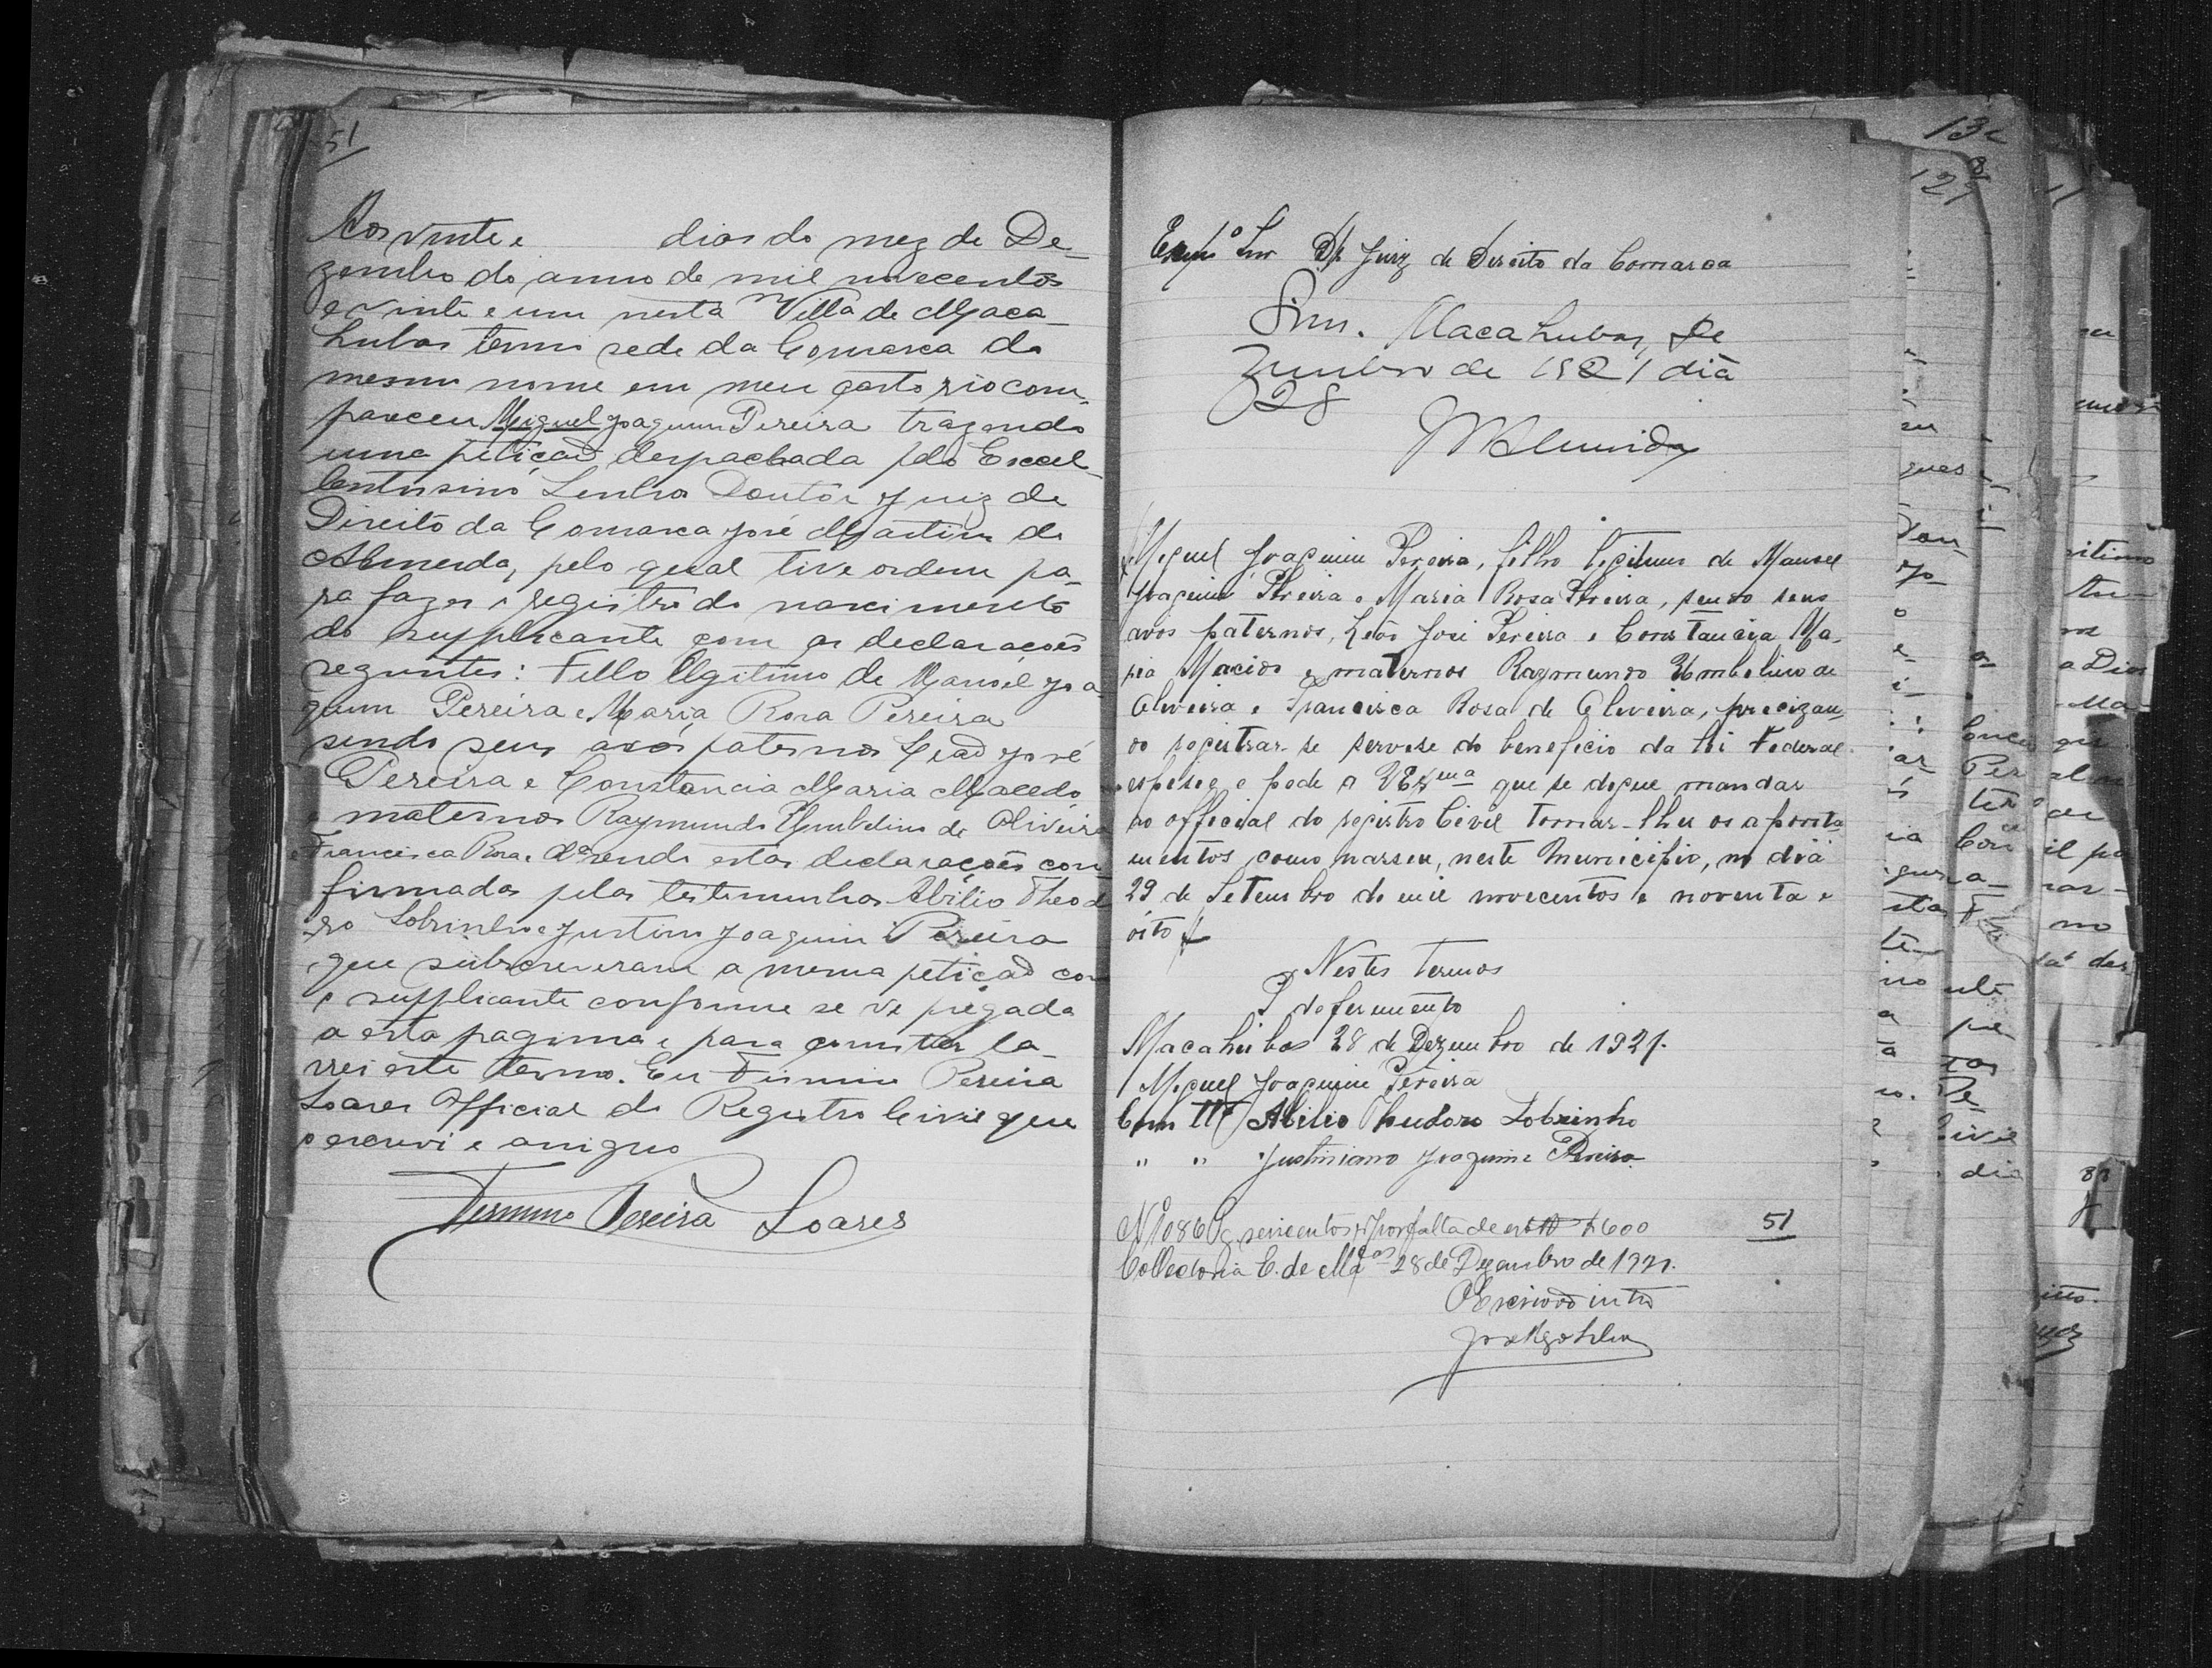 51
Aos vinte e dias do mez de De-
zembro do anno de mil novecentos
e vinte e um nesta Villa de Maca-
hubas termo sede da Comarca do
mesmo nome em meu cartorio com-
pareceu Miguel Joaquim Pereira trazendo
uma petição despachada pelo Excel-
lentissimo Senhor Doutor Juiz de
Direito da Comarca José Martins de
Almeida, pelo qual tive ordem pa-
ra fazer o registro do nascimento
do supplicante com as declarações
seguintes: Filho legitimo de Manoel Joa
quim Pereira e Maria Rosa Pereira
sendo seus avós paternos Leão José
Pereira e Constancia Maria Macedo
e maternos Raymundo Umbelino de Oliveira
e Francisca Rosa sendo estas declarações con
firmadas pelas testemunhas Abilio Theod
ro Sobrinho e Justino Joaquim Pereira
que subscreveram a mesma petição com
o supplicante conforme se vê pregada
a esta pagina e para constar la-
vrei este termo. Eu Firmino Pereira
Soares Official do Registro Civil que
o escrevi e assigno
Firmino Pereira Soares
Exmº Snr Dr Juiz de Direito da Comarca
Sim. Macahubas, De
zembro de 1921 dia
28
MAlmeida
Miguel Joaquim Pereira, filho legitimo de Manoel
Joaquim Pereira e Maria Rosa Pereira, sendo seus
avós paternos, Leão José Pereira e Constancia Ma-
ria Macido e maternos Raymundo Umbelino de
Oliveira e Francisca Rosa de Oliveira, precizan-
do registrar-se servese do beneficio da lei Federal
e pede a VExma que se digne mandar
ao official do registro Civil tomar-lher os aponta
mentos como nasseu, neste Municipio, no dia
29 de Setembro de mil novecentos e noventa e
oito
Nestes termos
P deferimento
Macahubas 28 de Dezembro de 1921.
Miguel Joaquim Pereira
Como ttª Abilio Theodoro Sobrinho
" " Justiniano Joaquim Pereira
Nº 1086 Pg seiscentos rs por falta de $600
51
Collectoria E. de Mac.as 28 de Dezembro de 1921.
O Escrivão intº
13
127
11